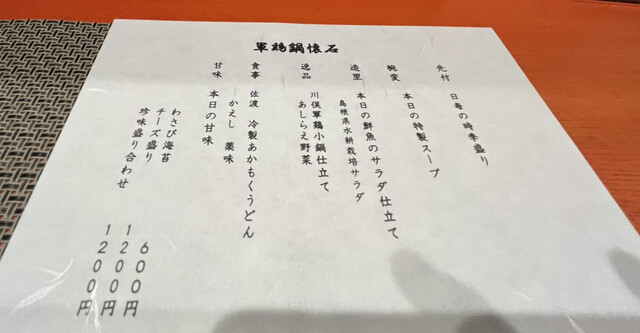 軍鶏鍋懐石
先付 日毎の時季盛り
椀変 本日の特製スープ
造里 本日の鮮魚のサラダ仕立て
島根県水耕栽培サラダ
逸品 川俣軍鶏小鍋仕立て
あしらえ野菜
食事 佐渡 冷製あかもくうどん
かえし 薬味
甘味 本日の甘味
わさび海苔 600円
チーズ盛り 1200円
珍味盛り合わせ 1200円